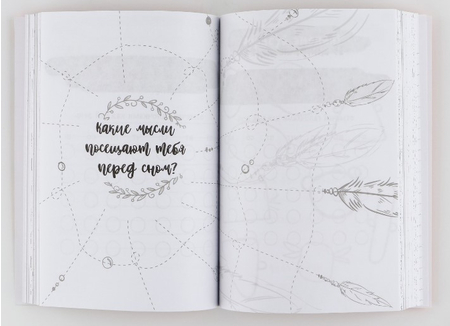 Какие мысли
посещают тебя
перед сном?